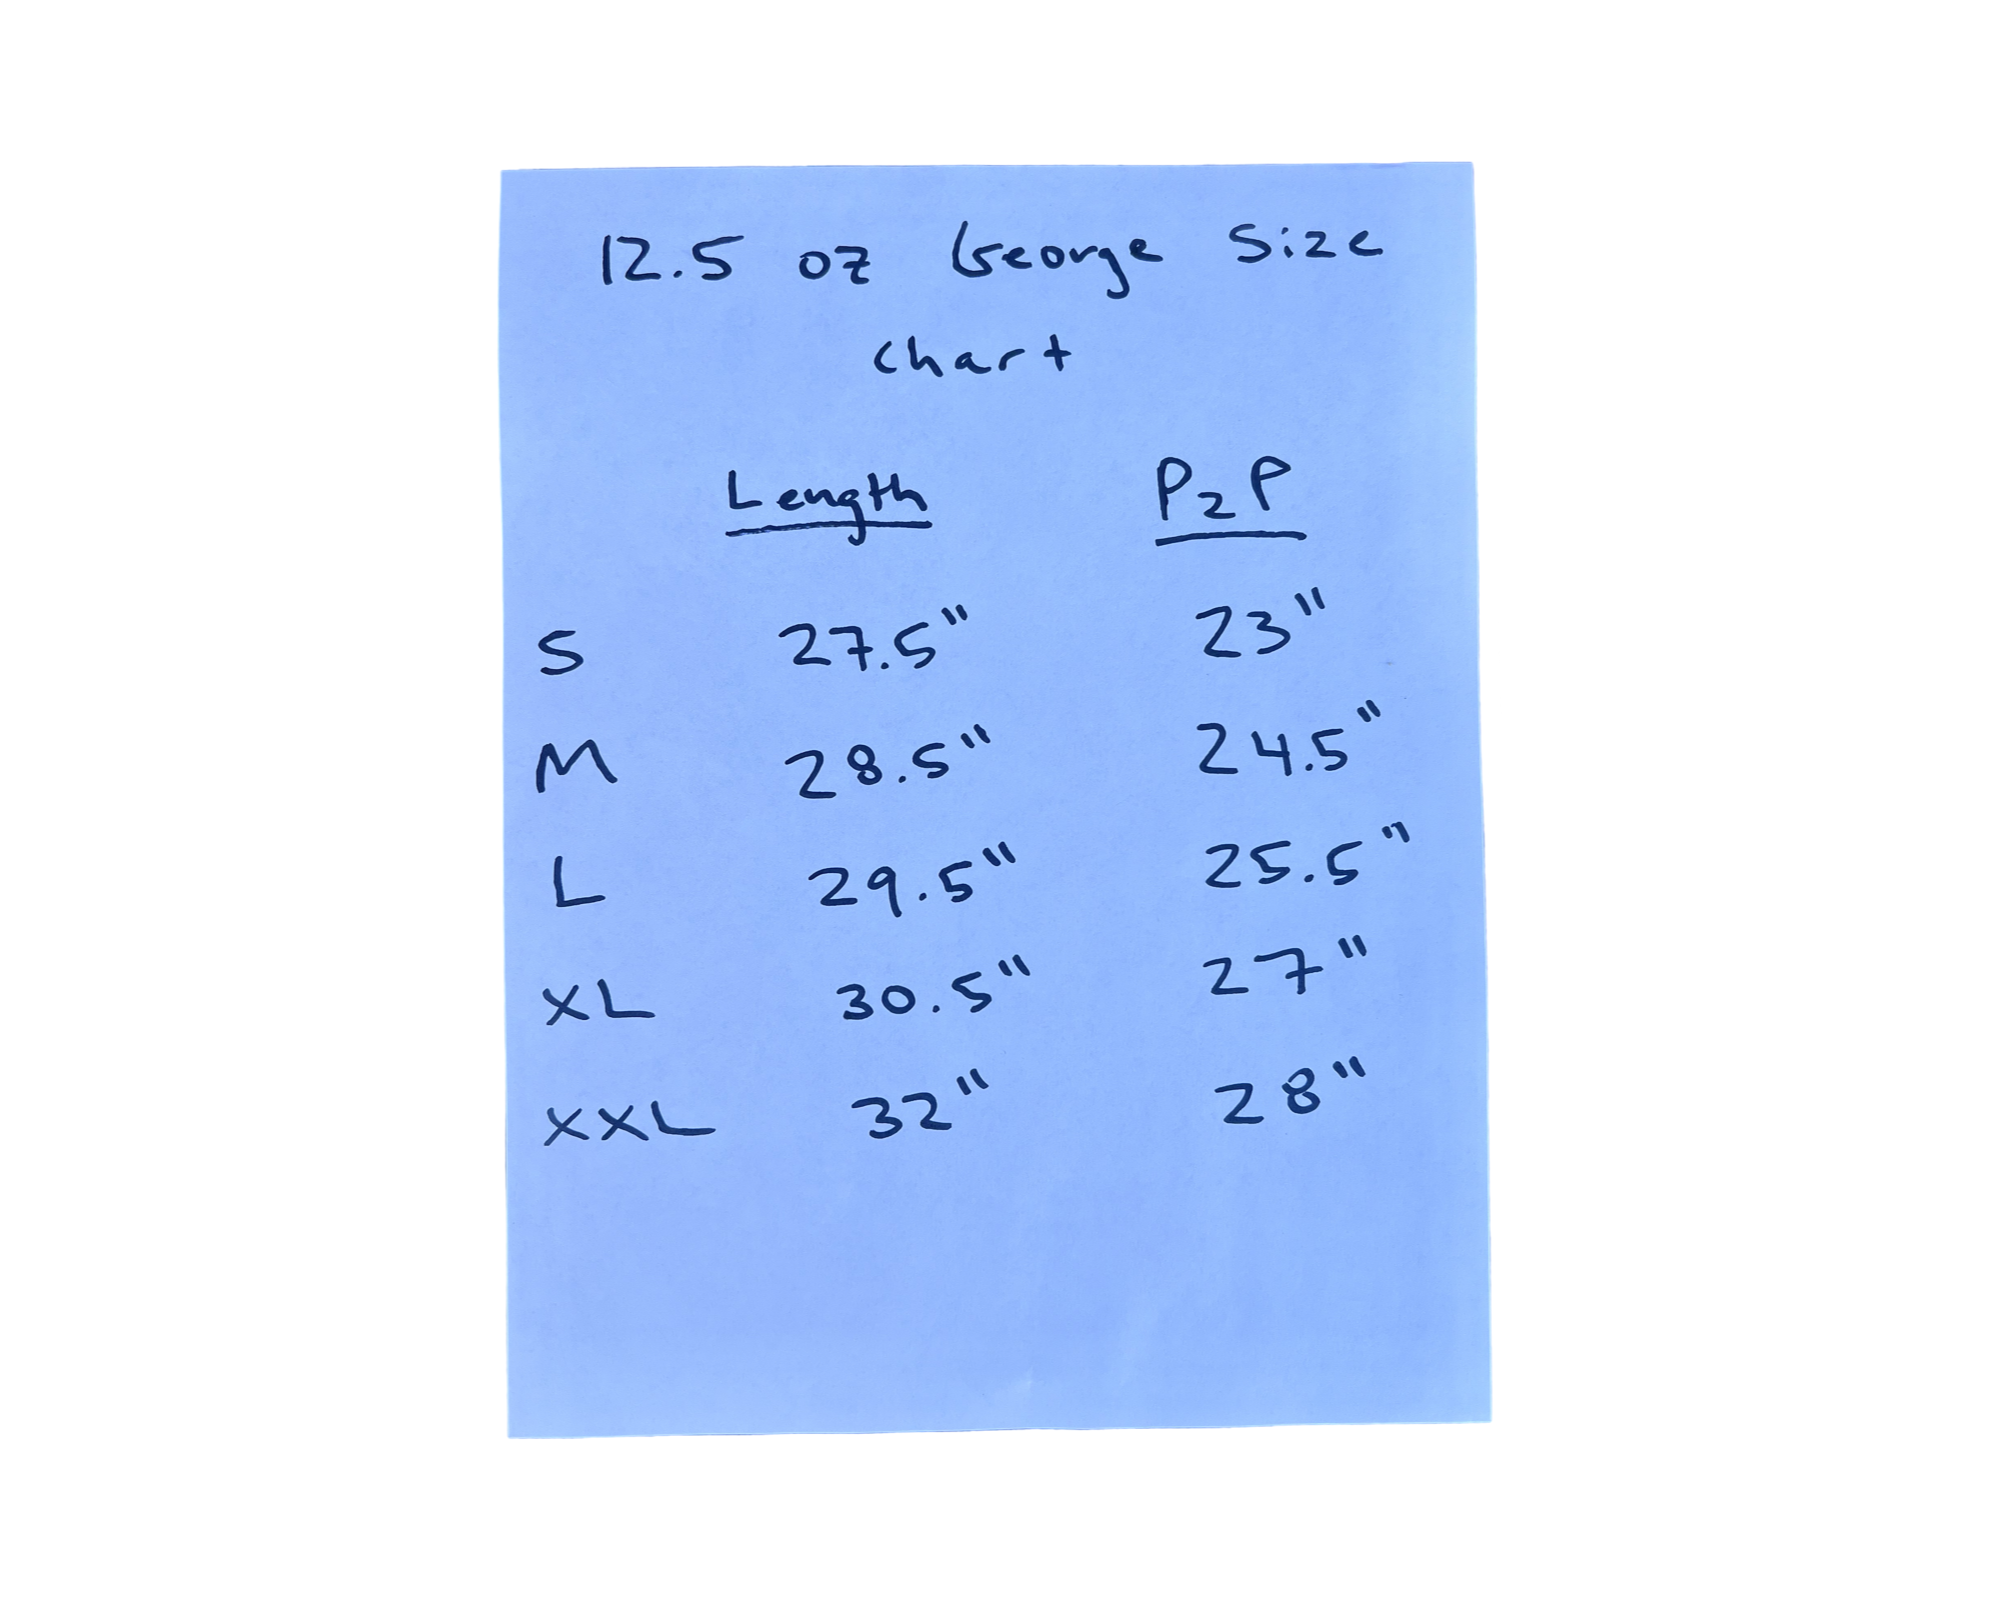 12.5 oz George Size
chart
Length P2P
S 27.5" 23"
M 28.5" 24.5"
L 29.5" 25.5"
XL 30.5" 27"
XXL 32" 28"